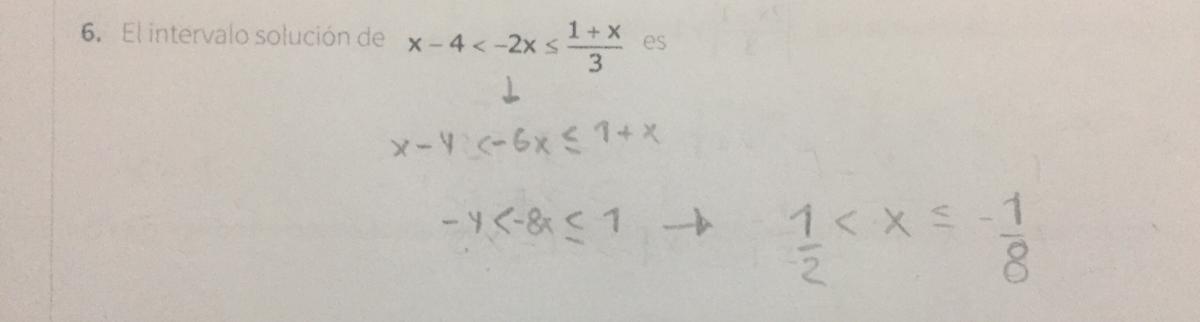 6. El intervalo solución de x – 4 < –2x ≤ (1 + x)/3 es
↓
x - 4 < -6x ≤ 1 + x
-4 < -8x ≤ 1 → 1/2 < x ≤ -1/8